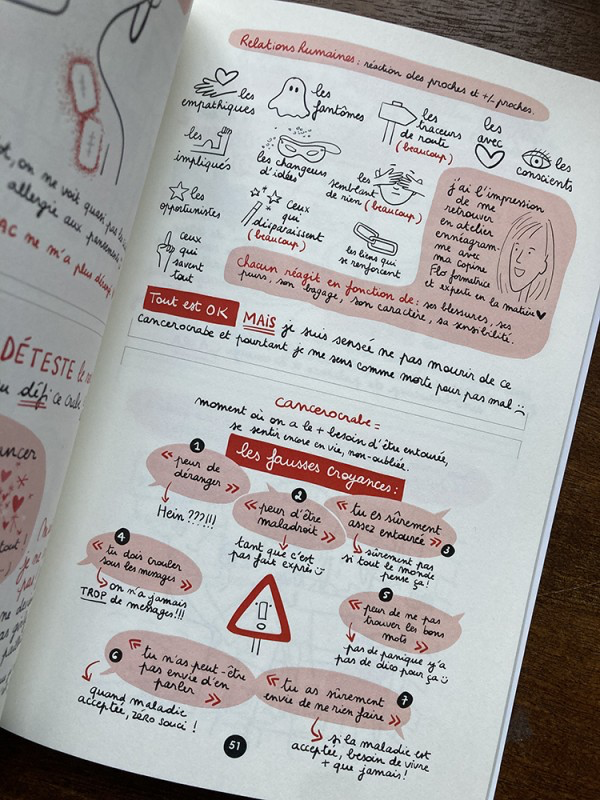 Relations Humaines : réaction des proches et +/- proches.
les empathiques
les fantômes
les traceurs de route (beaucoup)
les avec
les conscients
les impliqués
les changeurs d'idées
les semblant de rien (beaucoup)
les opportunistes
ceux qui disparaissent (beaucoup)
les liens qui se renforcent
ceux qui savent tout
j'ai l'impression
de me
retrouver
en atelier
ennéagram-
me avec
ma copine
Flo formatrice
et experte en la matière
chacun réagit en fonction de : ses blessures, ses
peurs, son bagage, son caractère, sa sensibilité.
Tout est OK MAIS je suis sensée ne pas mourir de ce
cancerocrabe et pourtant je me sens comme morte pour pas mal :(
cancerocrabe =
moment où on a le + besoin d'être entourée,
se sentir encore en vie, non-oubliée.
les fausses croyances :
1
« peur de
déranger »
Hein ???!!!
2
« peur d'être
maladroit »
tant que c'est
pas fait exprès :)
« tu es sûrement
assez entourée » 3
sûrement pas
si tout le monde
pense ça !
4
« tu dois crouler
sous les messages »
on n'a jamais
TROP de messages !!!
5
« peur de ne pas
trouver les bons
mots »
pas de panique y'a
pas de dico pour ça :)
6
« tu n'as peut-être
pas envie d'en
parler »
quand maladie
acceptée, zéro souci !
7
« tu as sûrement
envie de ne rien faire »
si la maladie est
acceptée, besoin de vivre
+ que jamais !
51
on ne voit quasi pas
allergie aux
ne m'a plus
DÉTESTE le
défi ce crabe
ancer